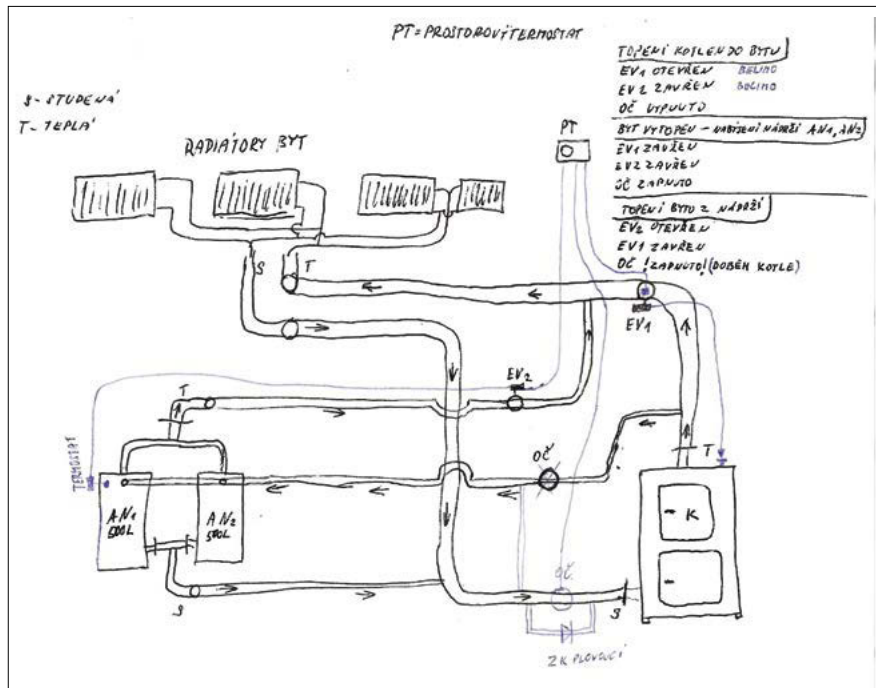 PT = PROSTOROVÝ TERMOSTAT
S - STUDENÁ
T - TEPLÁ
RADIÁTORY BYT
PT
TOPENÍ KOTLEM DO BYTU
EV1 OTEVŘEN BELIMO
EV2 ZAVŘEN BELIMO
OČ VYPNUTO
BYT VYTOPEN - NABÍJENÍ NÁDRŽÍ AN1, AN2
EV1 ZAVŘEN
EV2 ZAVŘEN
OČ ZAPNUTO
TOPENÍ BYTU Z NÁDRŽÍ
EV2 OTEVŘEN
EV1 ZAVŘEN
OČ !ZAPNUTO! (DOBĚH KOTLE)
S
T
EV1
EV2
T
OČ
T
TERMOSTAT
AN1
500L
AN2
500L
K
S
OČ
S
ZK PLOVOUCÍ